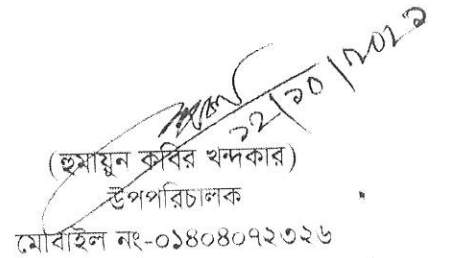 ১২/১০/২০২১
(হুমায়ুন কবির খন্দকার)
উপপরিচালক
মোবাইল নং-০১৪০৪০৭২৩২৬